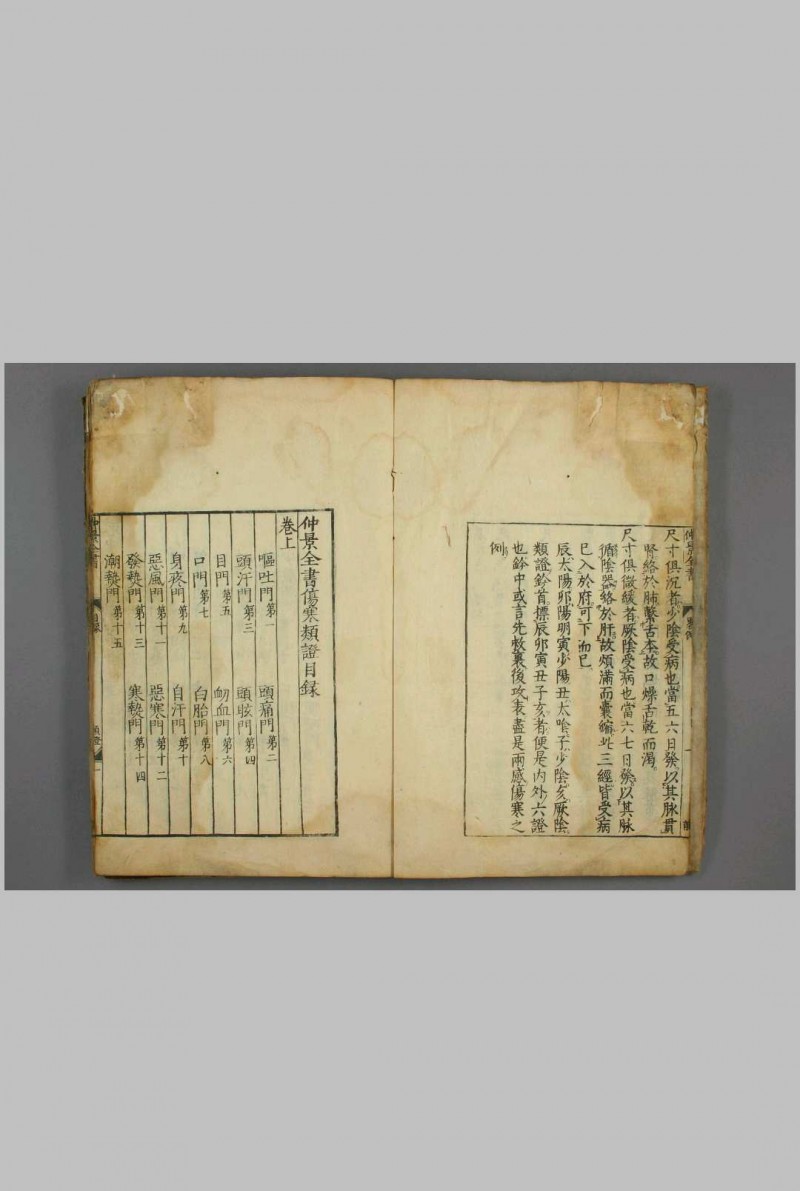 尺寸俱沉者少陰受病也當五六日發以其脉貫
腎絡於肺繫舌本故口燥舌乾而渴
尺寸俱微緩者厥陰受病也當六七日發以其脉
循陰器絡於肝故煩滿而囊縮此三經皆受病
已入於府可下而已
辰太陽卯陽明寅少陽丑太陰子少陰亥厥陰
類證鈐首標辰卯寅丑子亥者便是內外六證
也鈐中或言先救裏後攻表盡是兩感傷寒之
例
仲景全書
仲景全書傷寒類證目録
卷上
嘔吐門第一 頭痛門第二
頭汗門第三 頭眩門第四
目門第五 衂血門第六
口門第七 白胎門第八
身疼門第九 自汗門第十
惡風門第十一 惡寒門第十二
發熱門第十三 寒熱門第十四
潮熱門第十五
仲景全書